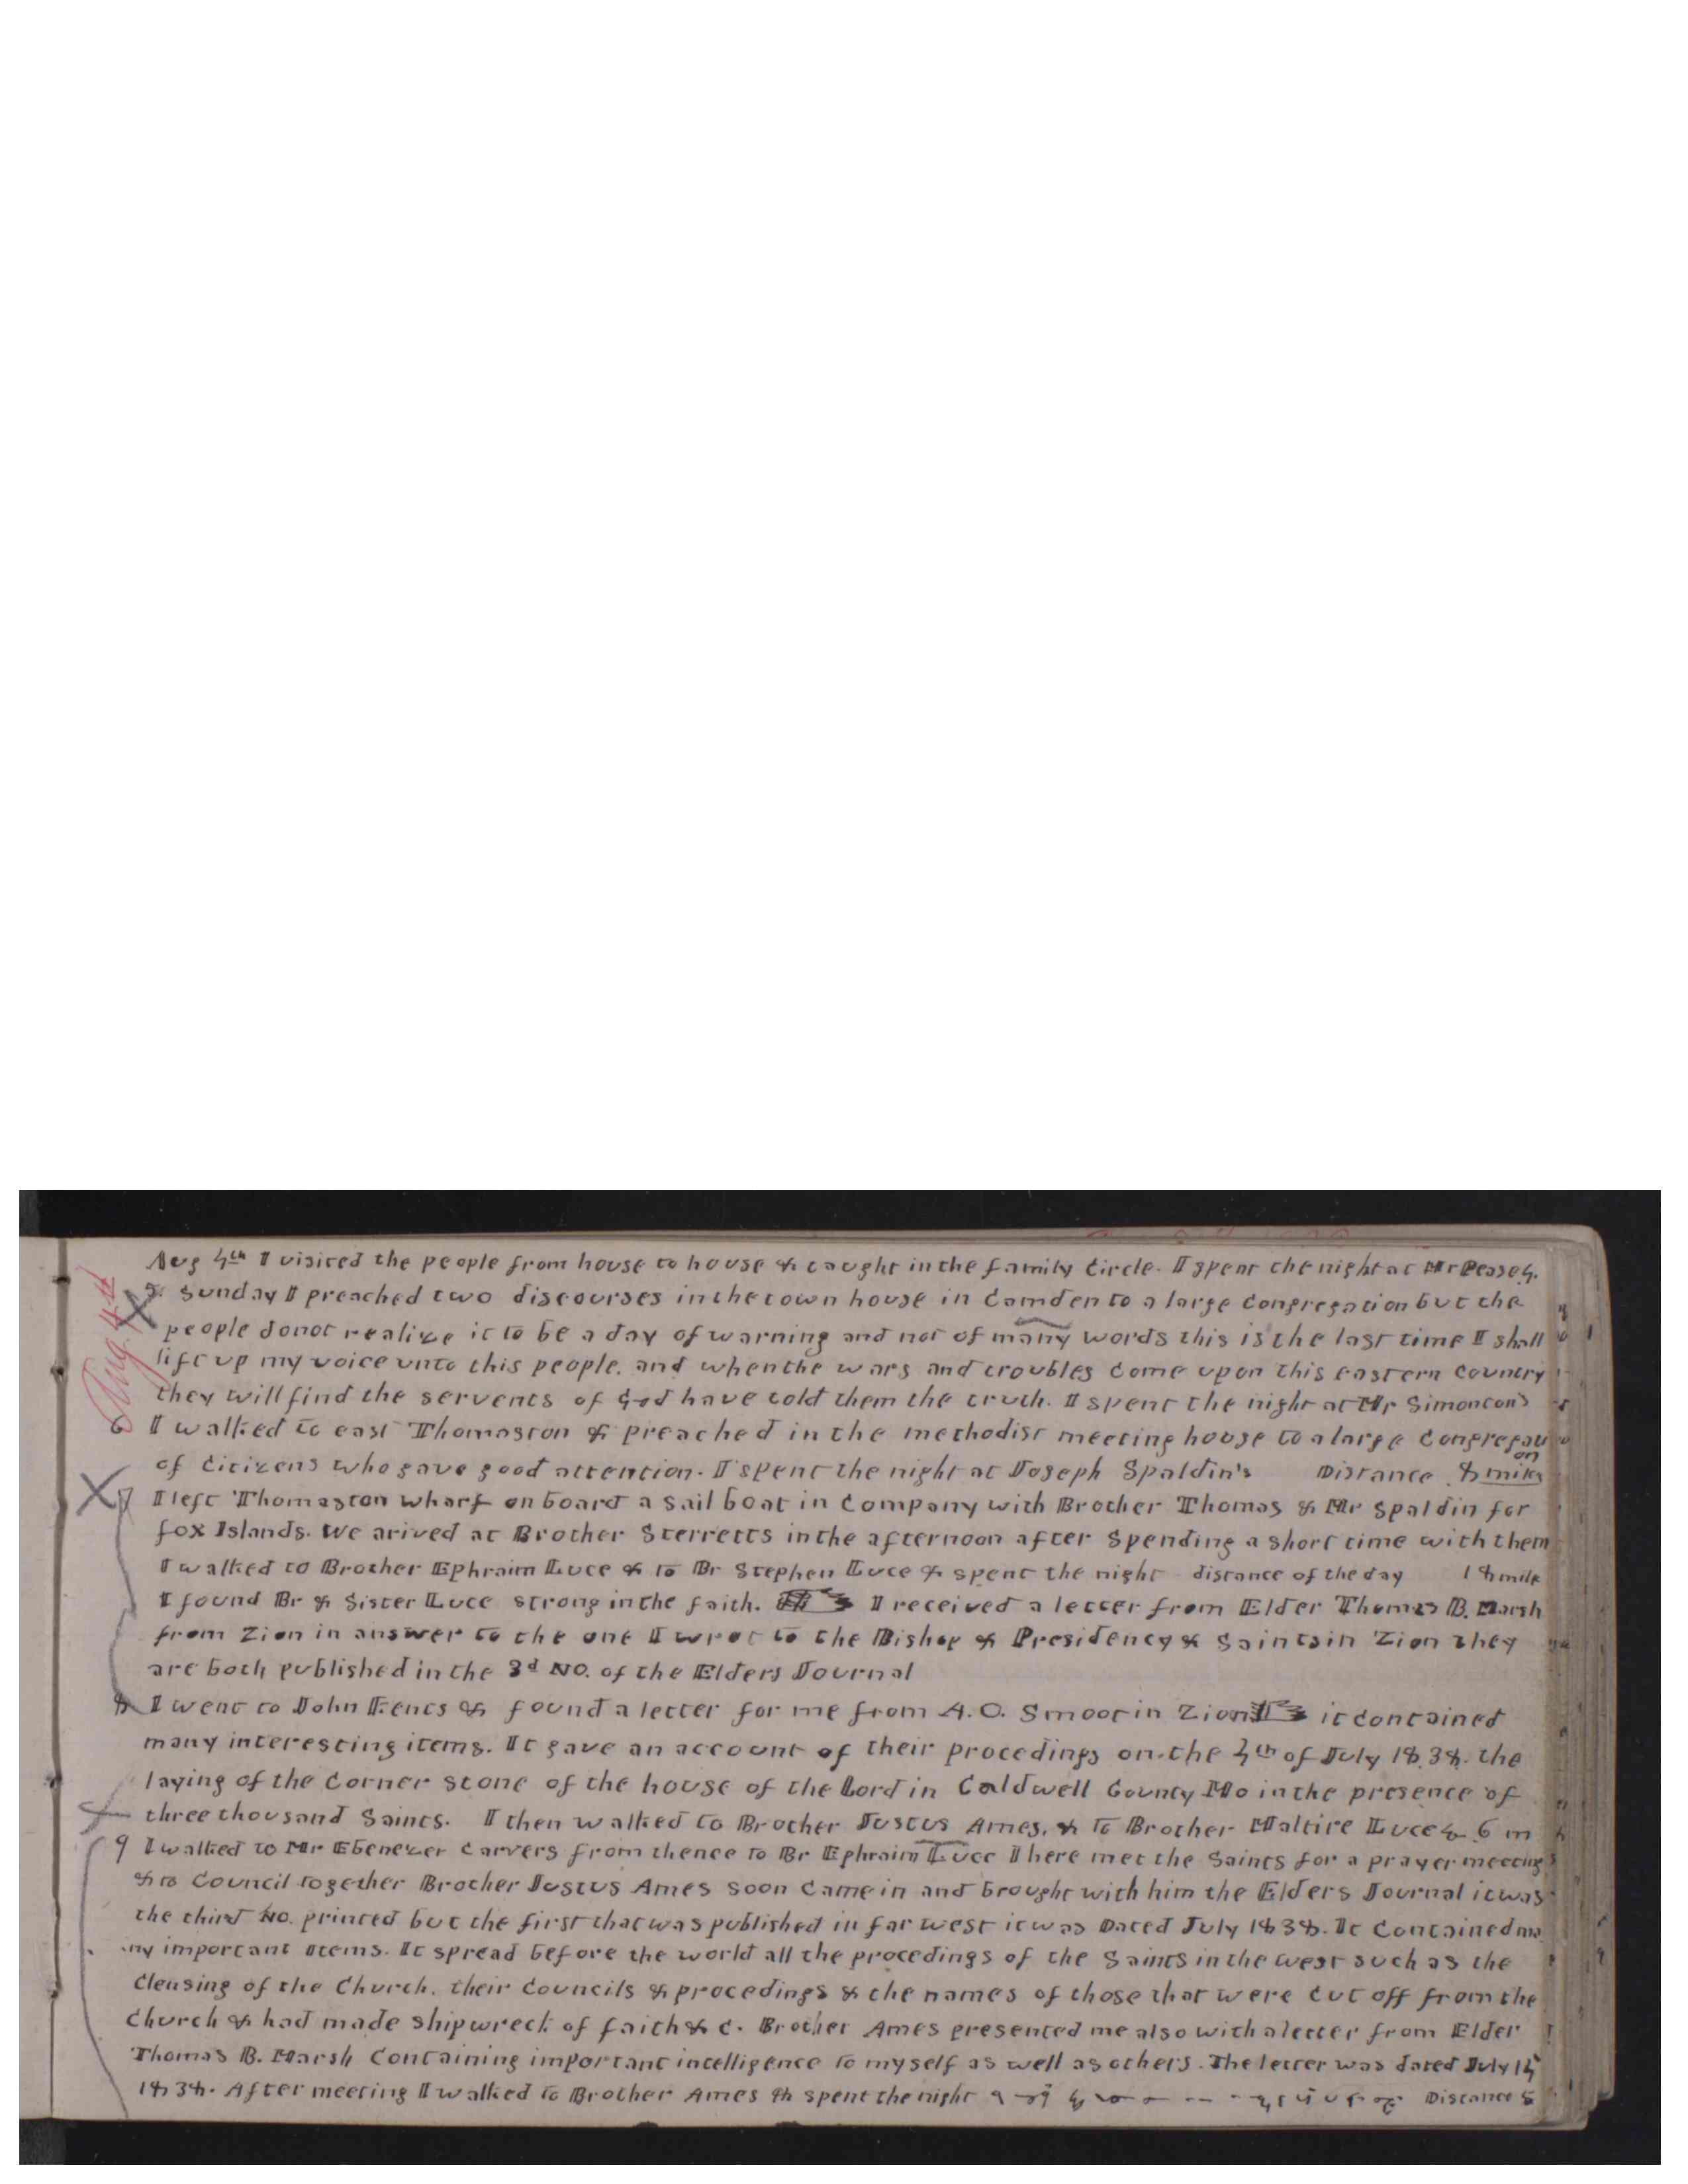 Aug 4th I visited the people from house to house & taught in the family Circle. I spent the night at Mr Pease 4.
Aug. 4th
5. Sunday I preached two discourses in the town house in Camden to a large Congregation but the
people donot realize it to be a day of warning and not of many words this is the last time I shall
lift up my voice unto this people. and when the wars and troubles Come upon this eastern Country
they will find the servents of God have told them the truth. I spent the night at Mr Simonton's
6 I walked to east Thomaston & preached in the methodist meeting house to a large Congregati
on
of Citizens who gave good attention. I spent the night at Joseph Spaldin's Distance 8 miles
7 I left Thomaston wharf on board a sail boat in Company with Brother Thomas & Mr Spaldin for
fox Islands. We arived at Brother Sterretts in the afternoon after Spending a short time with them
I walked to Brother Ephraim Luce & to Br Stephen Luce & spent the night distance of the day 18 mile
I found Br & Sister Luce strong in the faith. I received a letter from Elder Thomas B. Marsh
from Zion in answer to the one I wrot to the Bishop & Presidency & Saints in Zion they
are both published in the 3d NO. of the Elders Journal
8 I went to John Kents & found a letter for me from A. O. Smoot in Zion it Contained
many interesting items. It gave an account of their procedings on the 4th of July 1838. the
laying of the Corner stone of the house of the Lord in Caldwell County Mo in the presence of
three thousand Saints. I then walked to Brother Justus Ames. & to Brother Maltire Luce's 6 m
9 I walked to Mr Ebenezer Carvers from thence to Br Ephraim Luce I here met the Saints for a prayer meeting
& to Council together Brother Justus Ames soon Came in and brought with him the Elders Journal it was
the third NO. printed but the first that was published in far west it was Dated July 1838. It Contained ma
ny important Items. It spread before the world all the procedings of the Saints in the west such as the
Clensing of the Church. their Councils & procedings & the names of those that were Cut off from the
Church & had made shipwreck of faith & c. Brother Ames presented me also with a letter from Elder
Thomas B. Marsh Containing important intelligence to myself as well as others. The letter was dated July 14
1838. After meeting I walked to Brother Ames & spent the night Distance 5